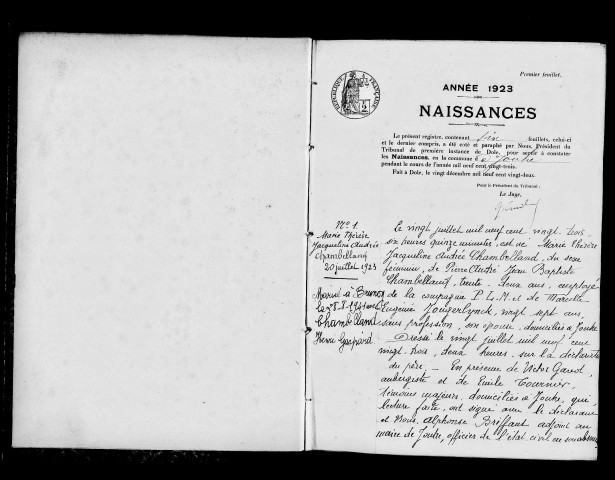 Premier feuillet.
ANNÉE 1923
RÉPUBLIQUE FRANÇAISE
NAISSANCES
Le présent registre, contenant six feuillets, celui-ci
et le dernier compris, a été coté et paraphé par Nous, Président du
Tribunal de première instance de Dole, pour servir à constater
les Naissances, en la commune de Jouhe
pendant le cours de l'année mil neuf cent vingt-trois.
Fait à Dole, le vingt décembre mil neuf cent vingt-deux.
Pour le Président du Tribunal :
Le Juge,
N° 1
Marie Thérèse
Jacqueline Andrée
Chambelland
20 juillet 1923
Marié à
Chambelland
Henri Gaspard.
Le vingt juillet mil neuf cent vingt trois
six heures quinze minutes, est née Marie Thérèse
Jacqueline Andrée Chambelland, du sexe
féminin, de Pierre André Jean Baptiste
Chambelland, trente deux ans, employé
de la compagnie P.L.M. et de Marcelle
Eugénie vingt sept ans,
sans profession, son épouse, domiciliés à Jouhe
Dressé le vingt juillet mil neuf cent
vingt trois, deux heures, sur la déclaration
du père. — En présence de Victor
aubergiste et de Emile Tournier,
témoins majeurs, domiciliés à Jouhe, qui,
lecture faite, ont signé avec le déclarant
et Nous, Alphonse Briffaut adjoint au
maire de Jouhe, officier de l'état civil